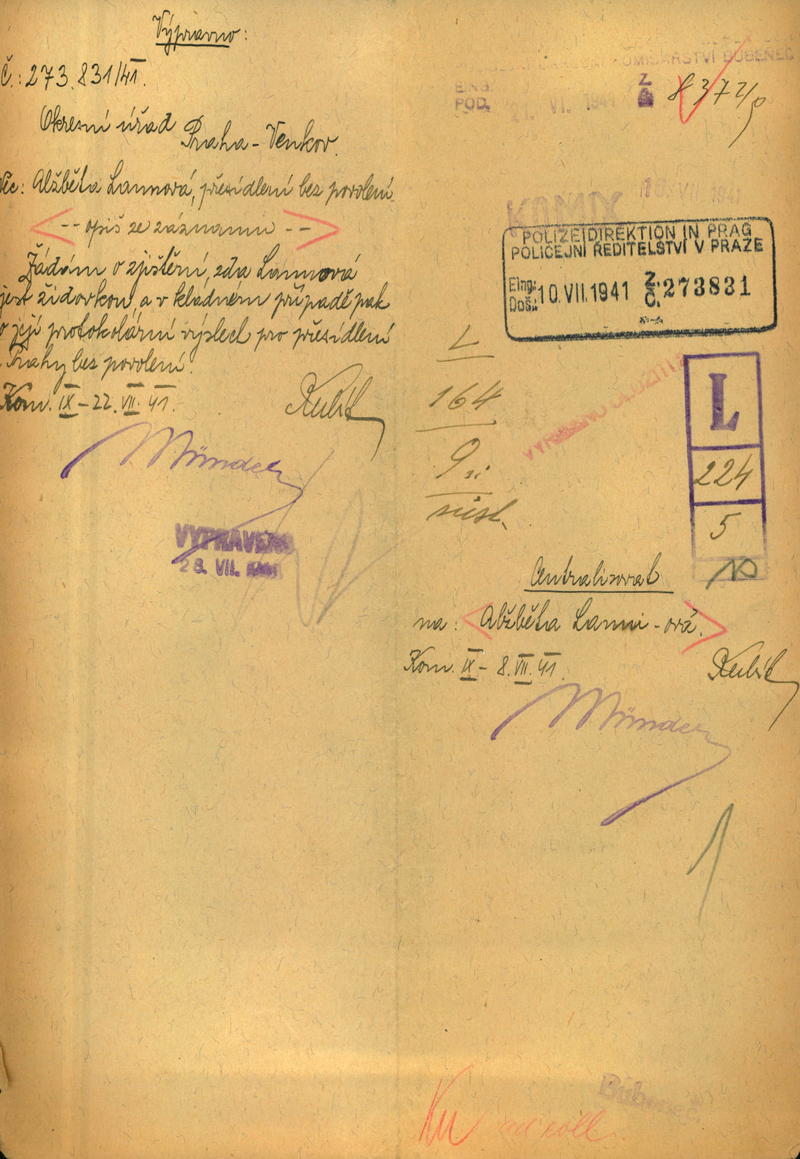 Výpravno:
Č.: 273.831/41.
Okresní úřad
Praha - Venkov.
Věc: Alžběta Lannová, přesídlení bez povolení
-- opiš ze záznamu --
Žádám o zjištění, zda Lannová
jest židovkou, a v kladném případě pak
o její protokolární výslech pro přesídlení
Prahy bez povolení.
Kom. IX - 22. VII. 41.
VYPRAVENO
28. VII. 1941
KOMISAŘSTVÍ BUBENEČ
EING.
POD. 21. VI. 1941
Z
Č
8372/
KOMIX
VII 1941
POLIZEIDIREKTION IN PRAG
POLICEJNÍ ŘEDITELSTVÍ V PRAZE
Eing.:
Došl.: 10. VII. 1941 Z.: Č. 273831
L
164
9
L
224
5
Centralisoval
na: Alžběta Lann - ová.
Kom. IX - 8. VII. 41.
Bubeneč